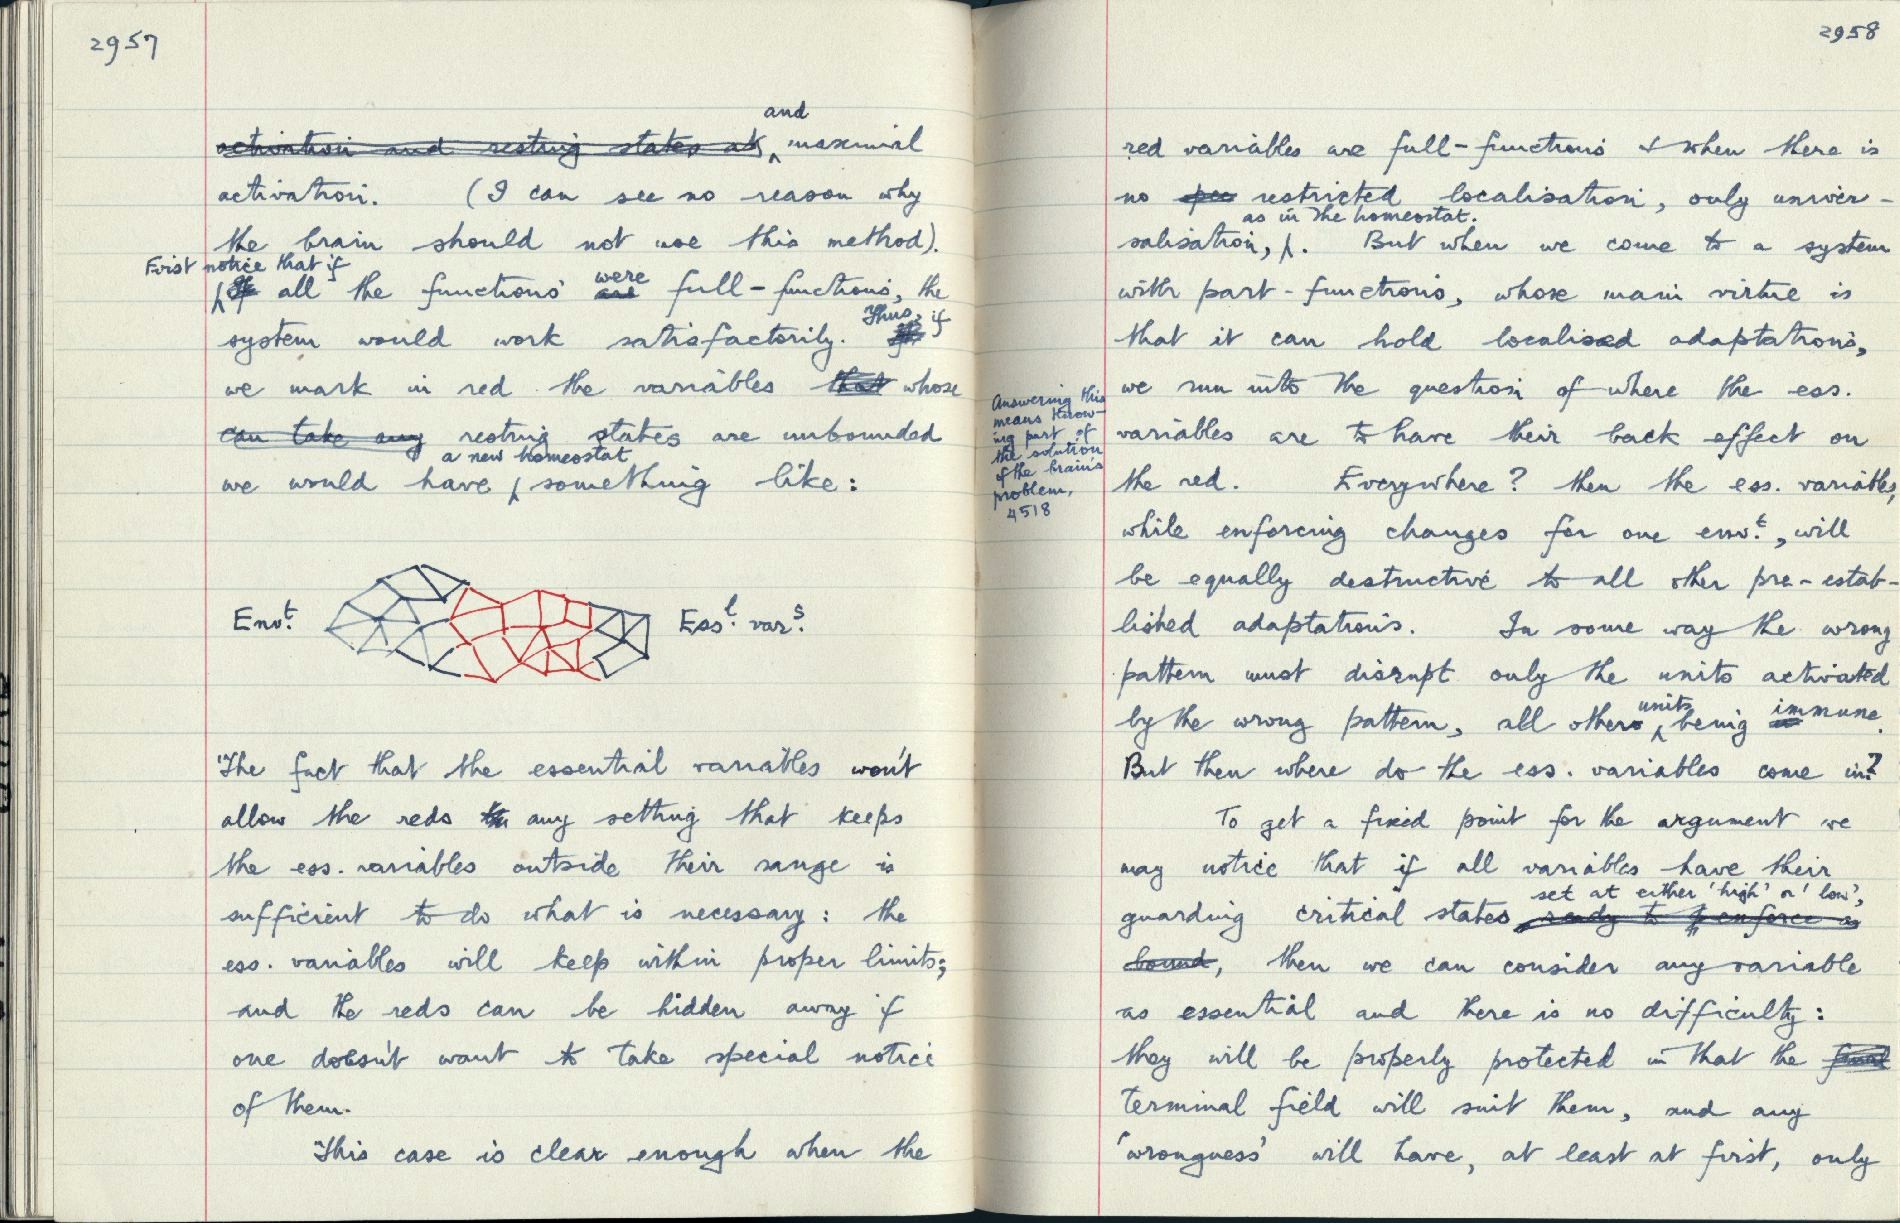 2957
and
activation and resting states at maximal
activation. (I can see no reason why
the brain should not use this method).
First notice that if
If all the functions are were full-functions, the
system would work satisfactorily. Thus, if
we mark in red the variables that whose
can take any resting states are unbounded
a new homeostat
we would have, something like:
Env.t Ess.l var.s
The fact that the essential variables won't
allow the reds any setting that keeps
the ess. variables outside their range is
sufficient to do what is necessary: the
ess. variables will keep within proper limits;
and the reds can be hidden away if
one doesn't want to take special notice
of them.
This case is clear enough when the
2958
red variables are full-functions & when there is
no restricted localisation, only univer-
as in the homeostat.
salisation, . But when we come to a system
with part-functions, whose main virtue is
that it can hold localised adaptations,
we run into the question of where the ess.
variables are to have their back effect on
the red. Everywhere? then the ess. variables,
while enforcing changes for one env.t, will
be equally destructive to all other pre-estab-
lished adaptations. In some way the wrong
pattern must disrupt only the units activated
by the wrong pattern, all others units being immune.
But then where do the ess. variables come in?
To get a fixed point for the argument we
may notice that if all variables have their
set at either 'high' or 'low',
guarding critical states ready to enforce a
bound, then we can consider any variable
as essential and there is no difficulty:
they will be properly protected in that the final
terminal field will suit them, and any
'wrongness' will have, at least at first, only
Answering this
means know-
ing part of
the solution
of the brain's
problem,
4518